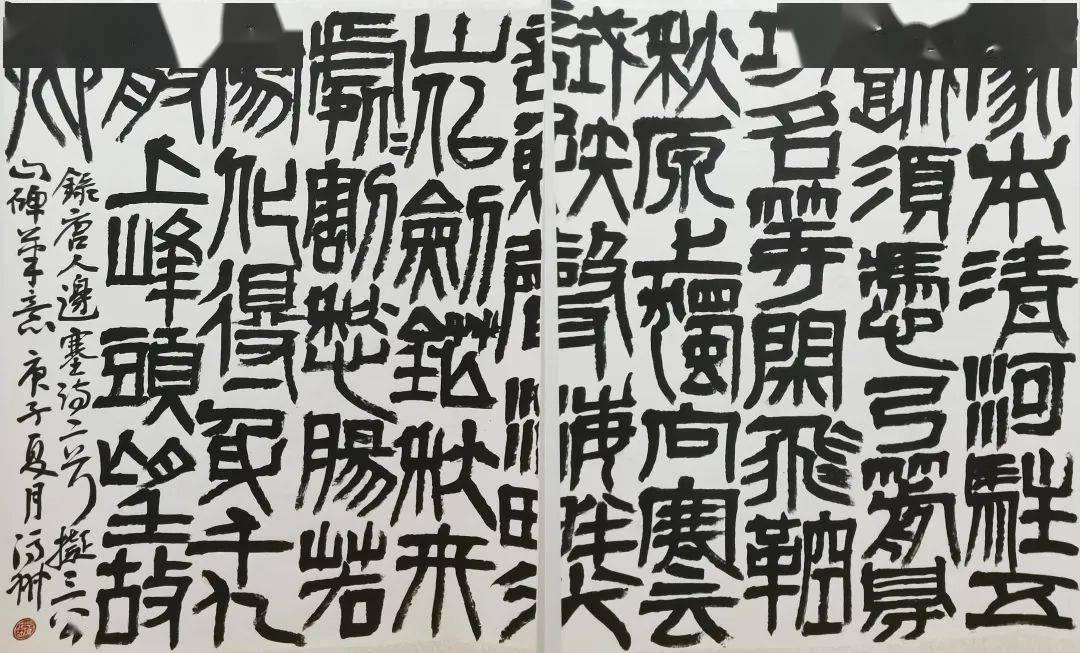 家本清河住五
城須憑弓箭得
功名等閑飛鞚
秋原上獨向寒雲
試射聲海畔尖
山似劍鋩秋来
處〻割愁腸若
為化得身千億
散上峰頭望故
鄉
錄唐人邊塞詩二首擬三公
山碑筆意庚子夏月